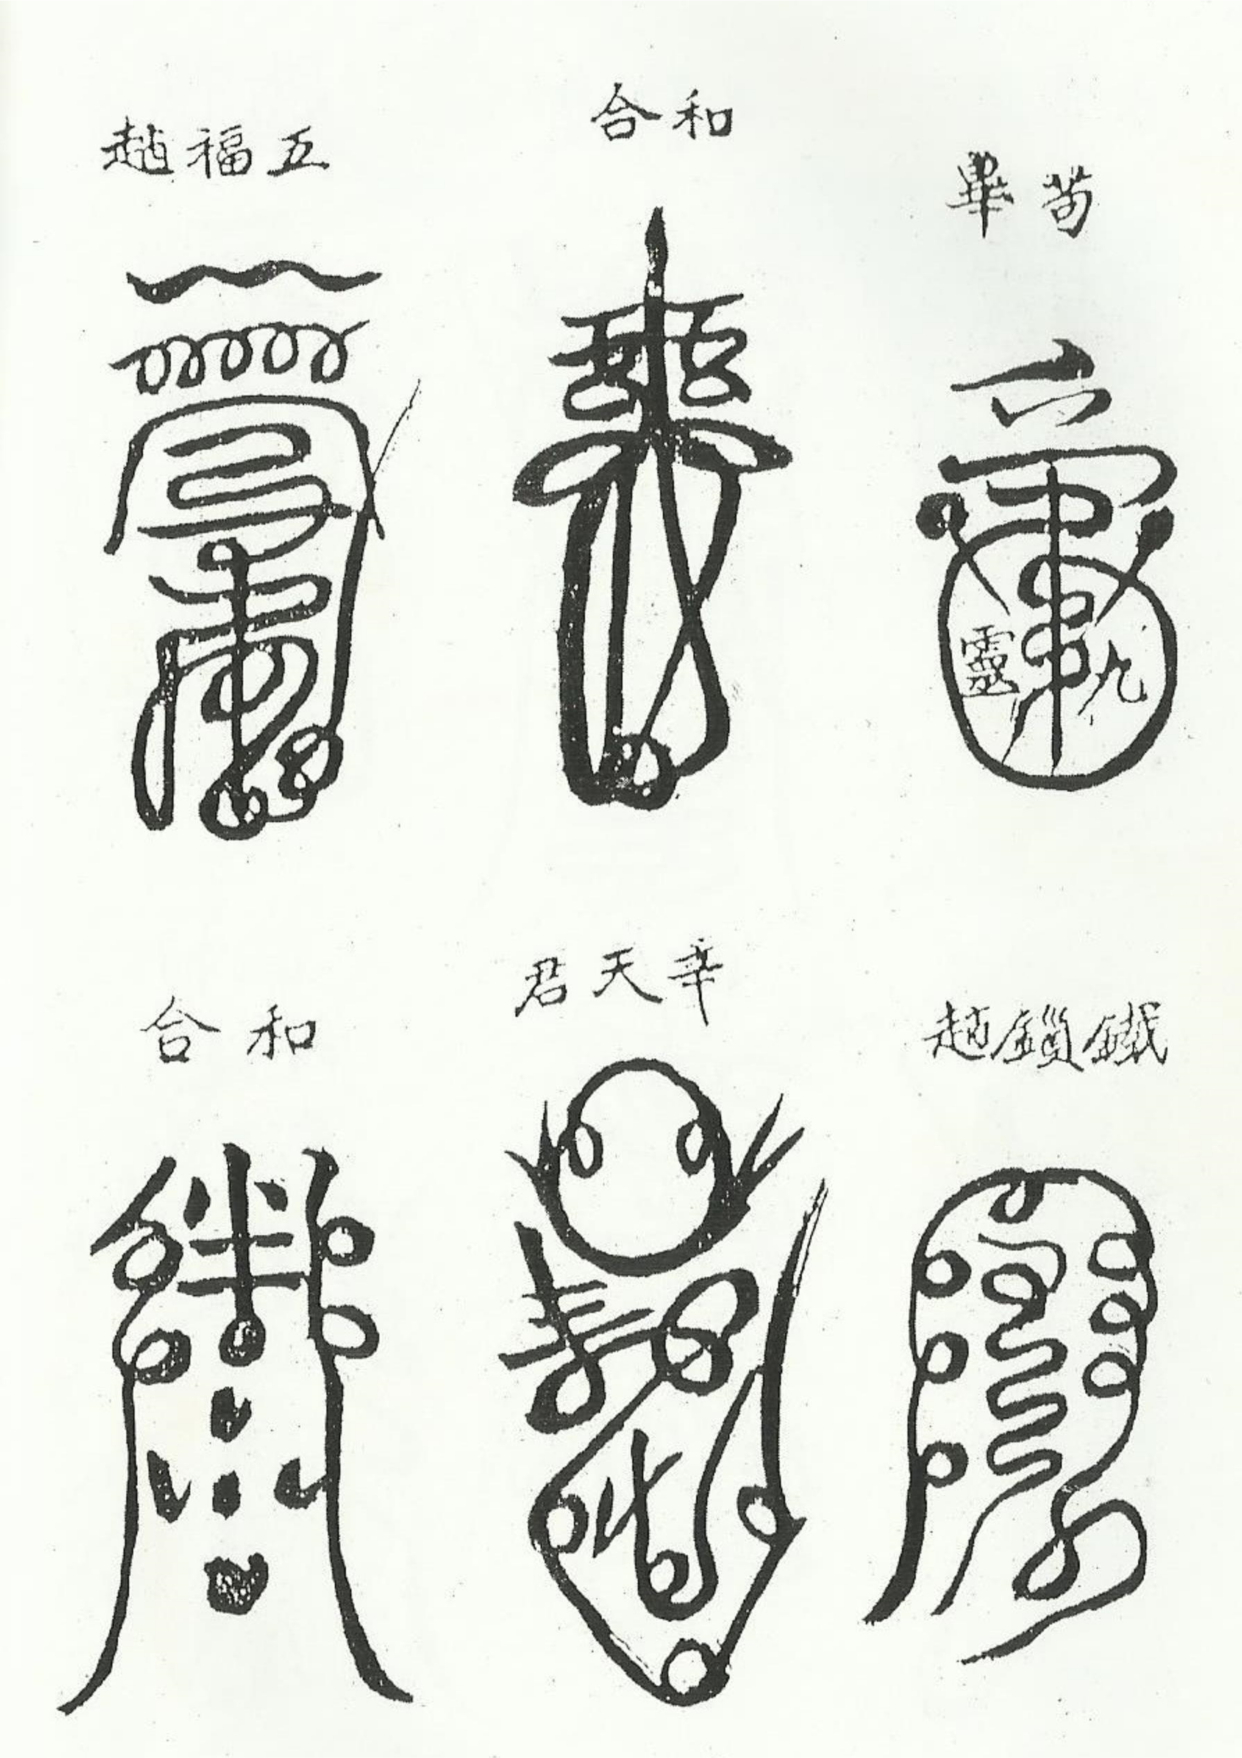 苟畢
九靈
和合
五福趙
鐵鎖趙
辛天君
和合